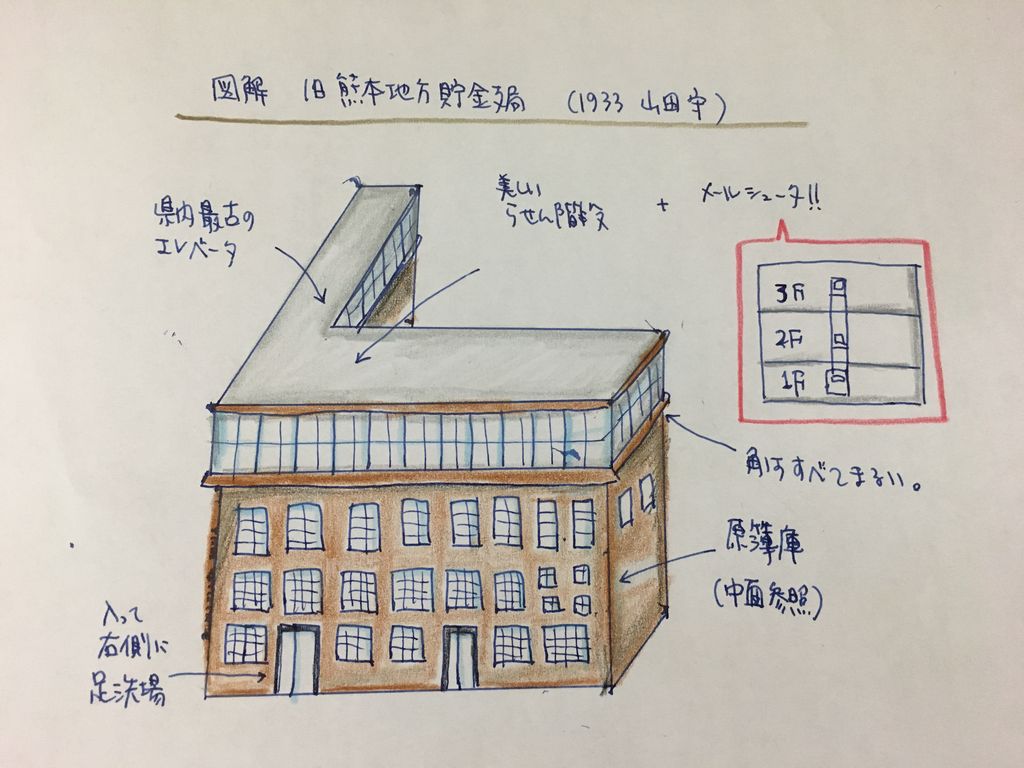 図解 旧熊本地方貯金支局 (1933 山田守)
県内最古の
エレベータ
美しい
らせん階段
+ メールシュータ!!
3F
2F
1F
角はすべてまるい。
原簿庫
(中面参照)
入って
右側に
足洗場